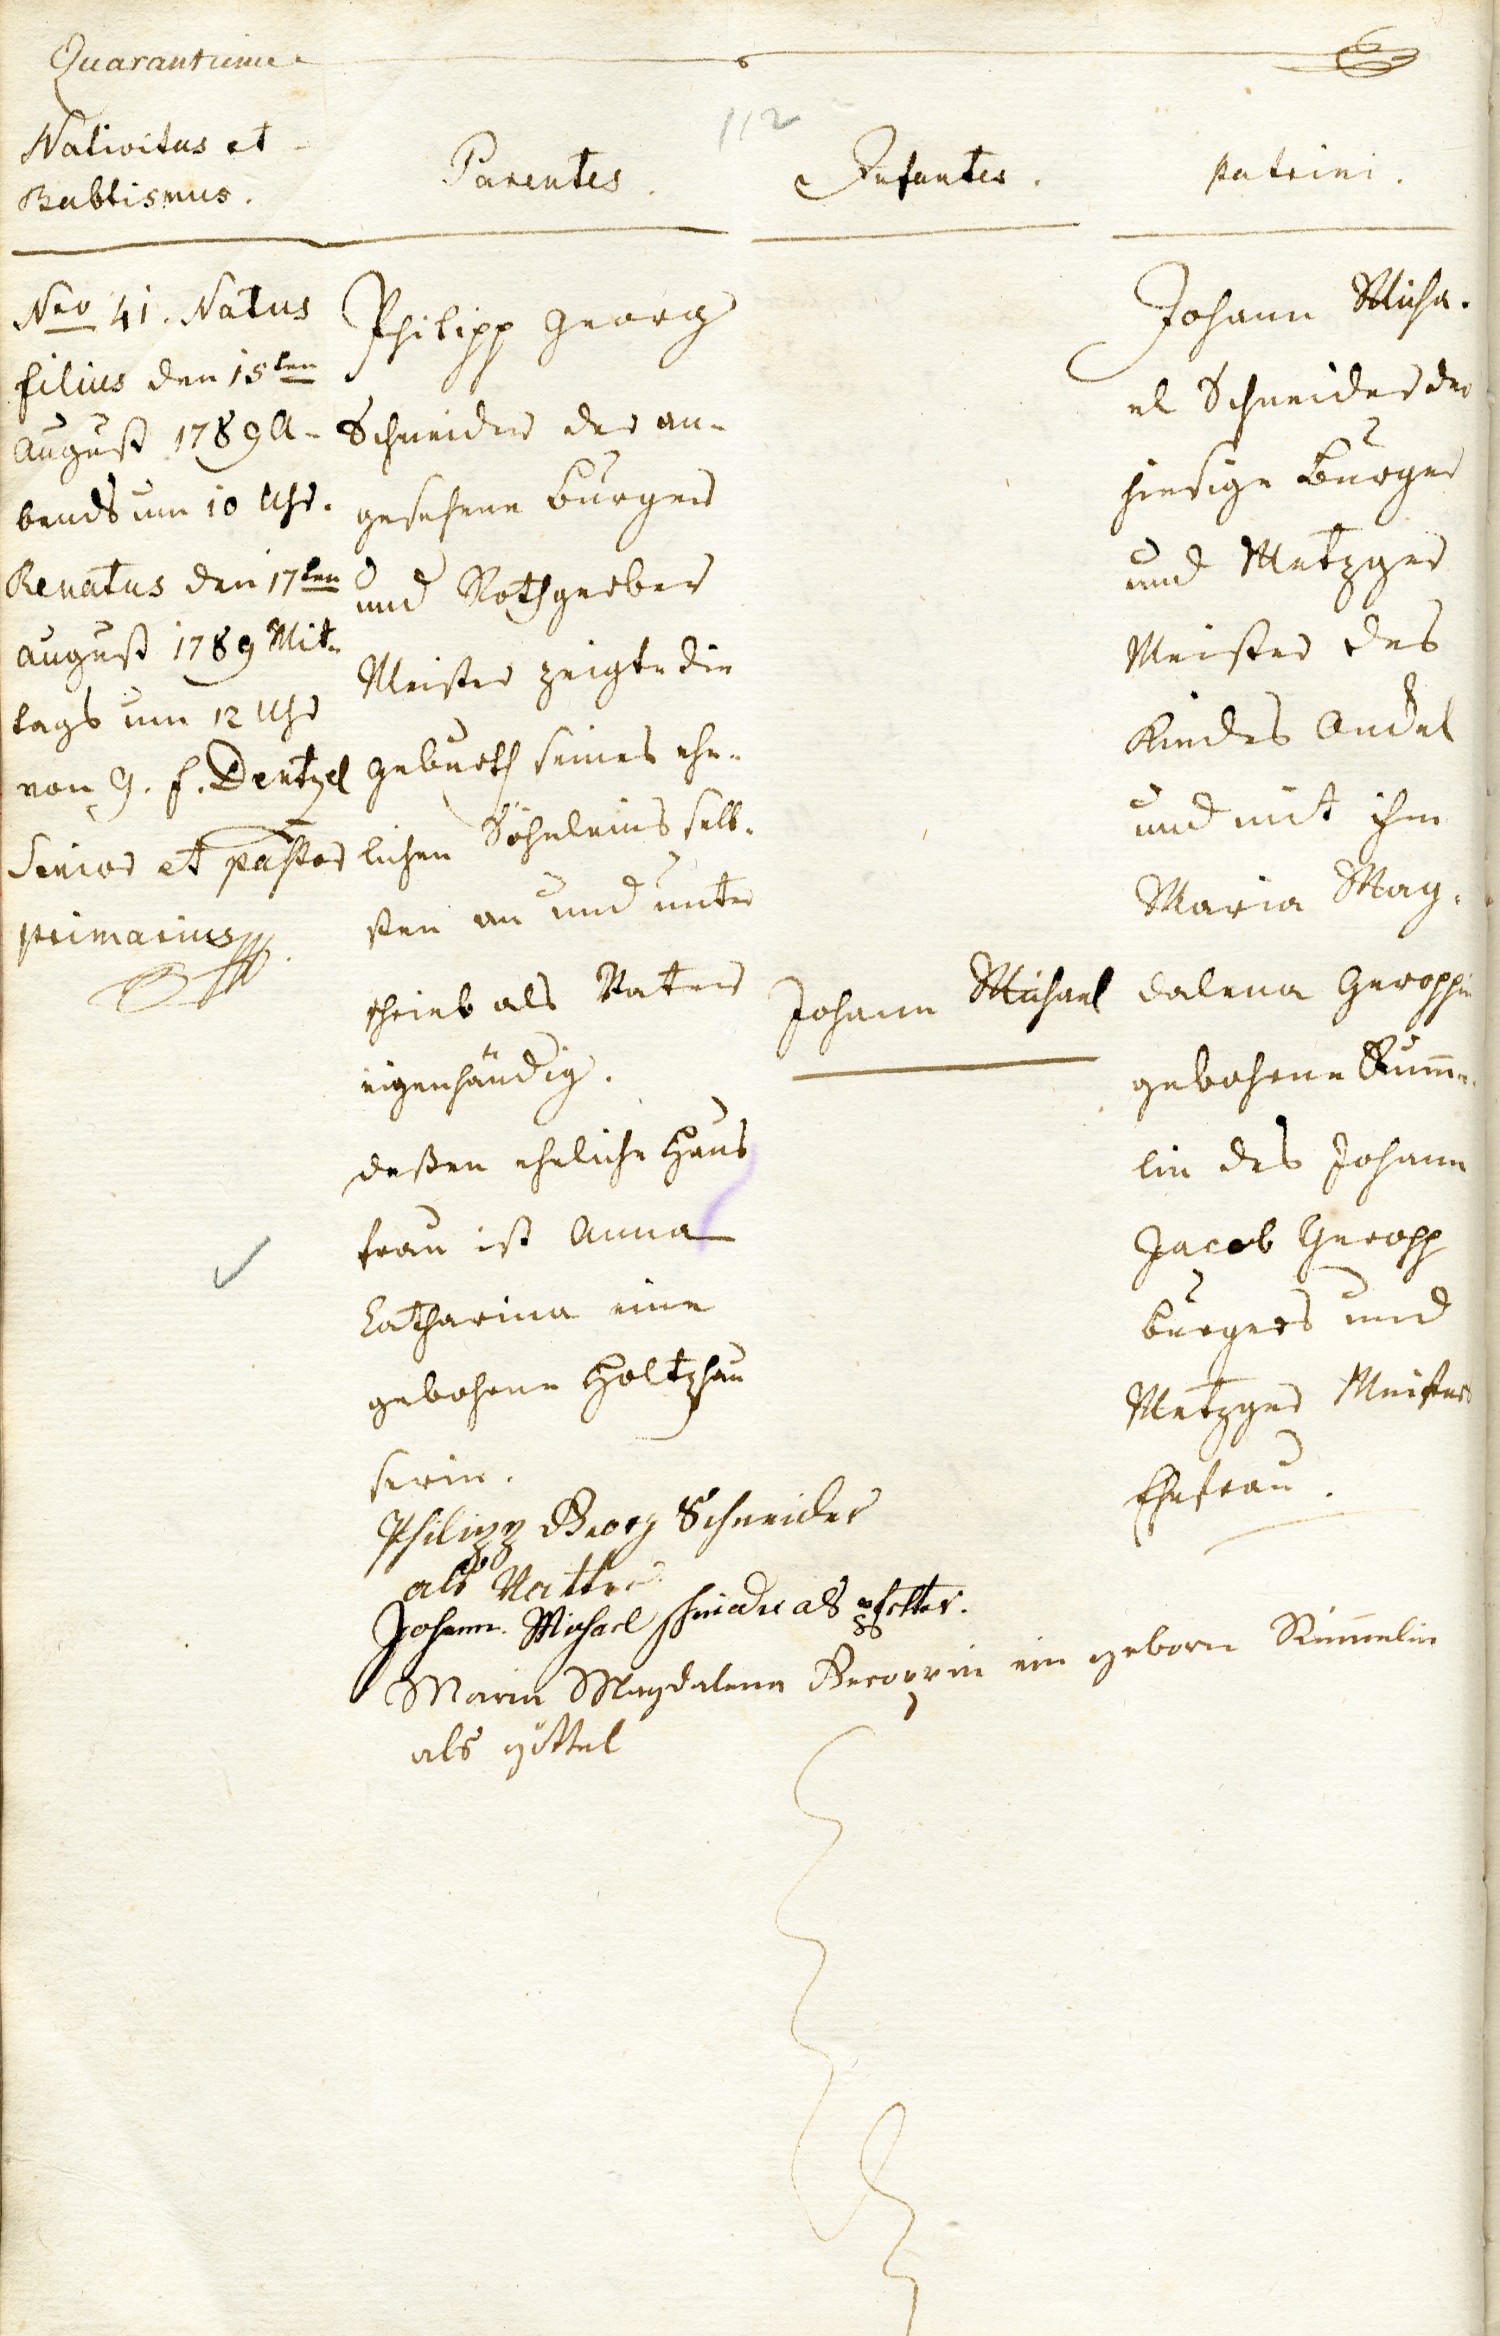 Quarantieme
112
Nativitas et
Babtismus.
Parentes.
Infantes.
Patrini.
Nro 41. Natus
filius den 15ten
August 1789 A-
bends um 10 Uhr.
Renatus den 17ten
August 1789 Mit-
tags um 12 Uhr
von G. F. Dentzel
Senior et pastor
primarius
Philipp Georg
Schneider der an-
gesehene Burger
und Rothgerber
Meister zeigte die
Geburth seines ehe-
lichen Söhnleins selb-
sten an und unter
schrieb als Vater
eigenhändig.
deßen eheliche Haus
frau ist Anna
Catharina eine
gebohrne Holtzhau
serin.
Johann Michael
Johann Micha-
el Schneider der
hiesige Burger
und Metzger
Meister des
Kindes Onckel
und mit ihm
Maria Mag-
dalena Geropp
gebohrne Kümm-
lin des Johann
Jacob Geropp
burgers und
Metzger Meisters
Ehefrau.
Philipp Georg Schneider
als Vatter
Johann Michael Schneider als pfetter.
Maria Magdalena Geroppin ein geborn Kümmelin
als göttel